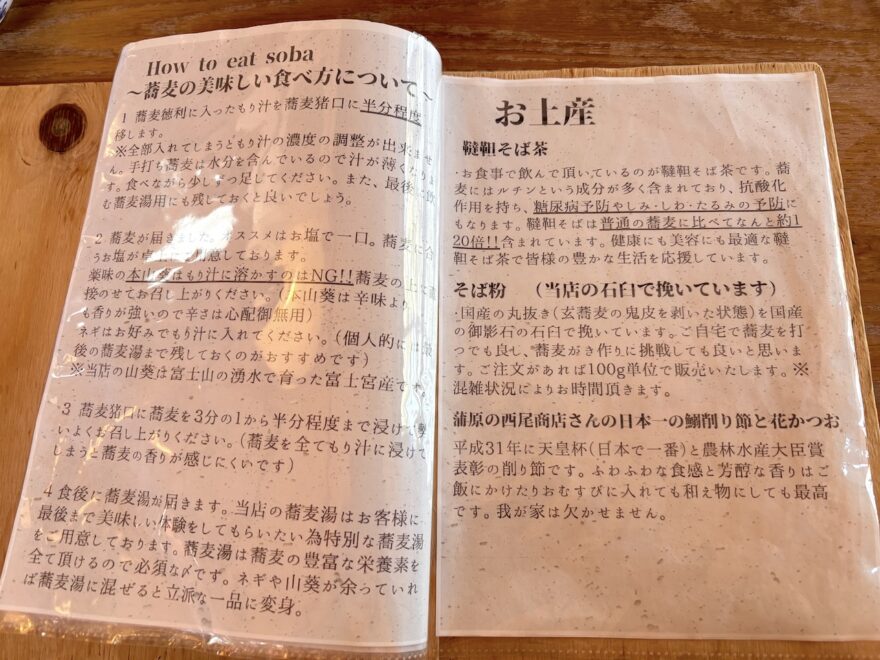 How to eat soba
～蕎麦の美味しい食べ方について～
1 蕎麦徳利に入ったもり汁を蕎麦猪口に半分程度
移します。
※全部入れてしまうともり汁の濃度の調整が出来ませ
ん。手打ち蕎麦は水分を含んでいるので汁が薄くなりま
す。食べながら少しずつ足してください。また、最後に飲
む蕎麦湯用にも残しておくと良いでしょう。
2 蕎麦が届きました。オススメはお塩で一口。蕎麦に合
うお塩が卓上にご用意しております。
薬味の本山葵はもり汁に溶かすのはNG!!蕎麦の上に直
接のせてお召し上がりください。(本山葵は辛味より
も香りが強いので辛さは心配御無用)
ネギはお好みでもり汁に入れてください。(個人的には最
後の蕎麦湯まで残しておくのがおすすめです)
※当店の山葵は富士山の湧水で育った富士宮産です。
3 蕎麦猪口に蕎麦を3分の1から半分程度まで浸けて勢
いよくお召し上がりください。(蕎麦を全てもり汁に浸けて
しまうと蕎麦の香りが感じにくいです)
4 食後に蕎麦湯が届きます。当店の蕎麦湯はお客様に
最後まで美味しい体験をしてもらいたい為特別な蕎麦湯
をご用意しております。蕎麦湯は蕎麦の豊富な栄養素を
全て頂けるので必須な〆です。ネギや山葵が余っていれ
ば蕎麦湯に混ぜると立派な一品に変身。
お土産
韃靼そば茶
·お食事で飲んで頂いているのが韃靼そば茶です。蕎
麦にはルチンという成分が多く含まれており、抗酸化
作用を持ち、糖尿病予防やしみ·しわ·たるみの予防に
もなります。韃靼そばは普通の蕎麦に比べてなんと約1
20倍!!含まれています。健康にも美容にも最適な韃
靼そば茶で皆様の豊かな生活を応援しています。
そば粉 (当店の石臼で挽いています)
·国産の丸抜き(玄蕎麦の鬼皮を剥いた状態)を国産
の御影石の石臼で挽いています。ご自宅で蕎麦を打
つでも良し、蕎麦がき作りに挑戦しても良いと思いま
す。ご注文があれば100g単位で販売いたします。※
混雑状況によりお時間頂きます。
蒲原の西尾商店さんの日本一の鰯削り節と花かつお
平成31年に天皇杯(日本で一番)と農林水産大臣賞
表彰の削り節です。ふわふわな食感と芳醇な香りはご
飯にかけたりおむすびに入れても和え物にしても最高
です。我が家は欠かせません。